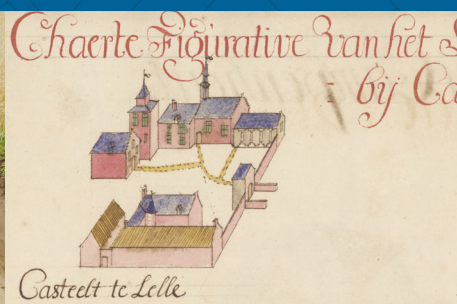 Chaerte Figürative Van het
bij Ca
Casteelt te Lelle